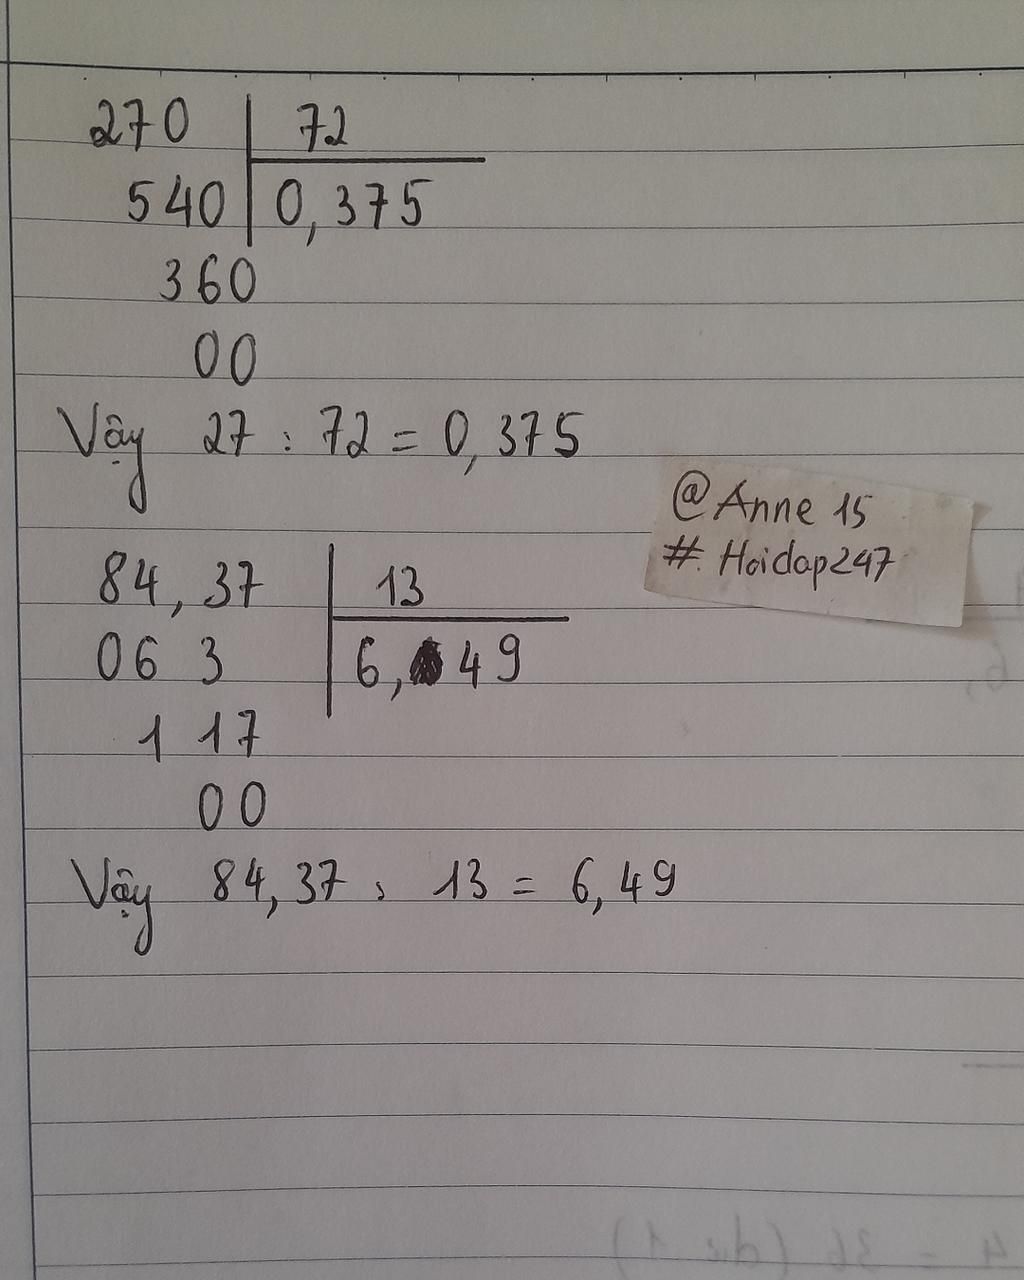 270 72
540 0,375
360
00
Vậy 27 : 72 = 0,375
@Anne 15
# Hoidap247
84,37 13
06 3 6,49
1 17
00
Vậy 84,37 : 13 = 6,49
4 = 36 (dư 1)